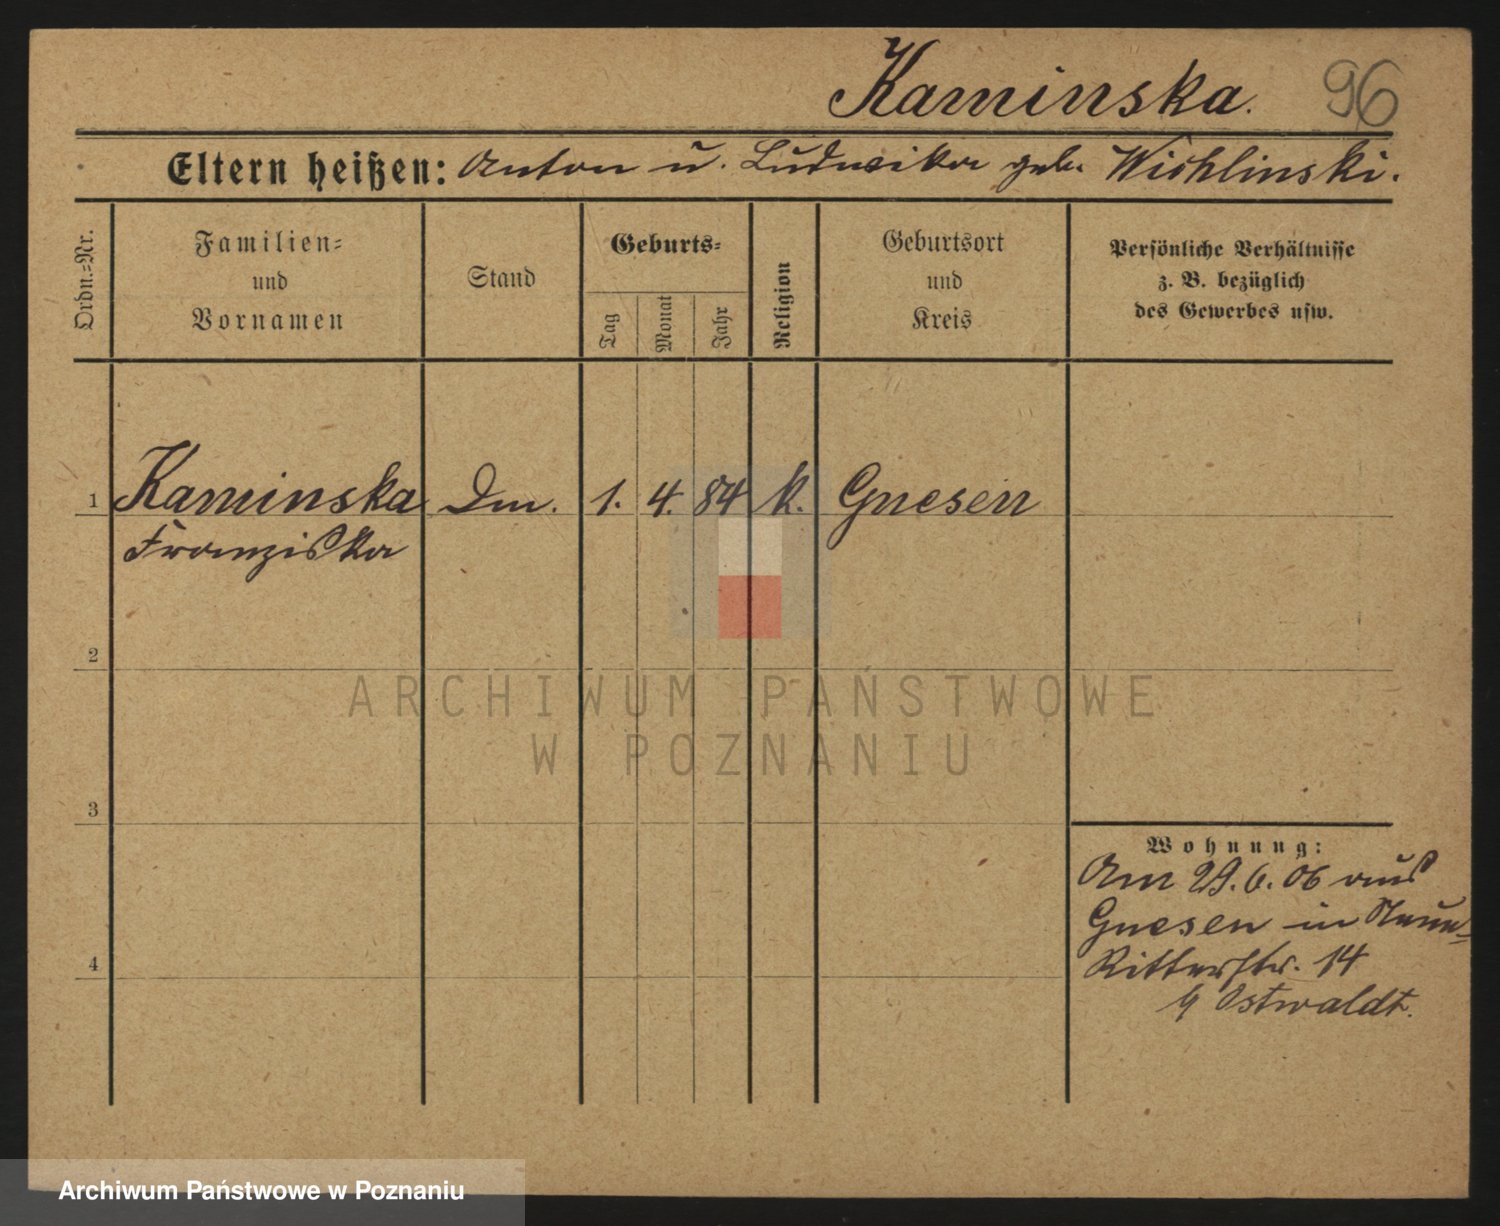 Kaminska. 96
Eltern heißen: Anton u. Ludwika geb. Wichlinski.
Ordn.=Nr.
Familien=
und
Vornamen
Stand
Geburts=
Tag
Monat
Jahr
Religion
Geburtsort
und
Kreis
Persönliche Verhältnisse
z. B. bezüglich
des Gewerbes usw.
1 Kaminska Dm. 1. 4. 84 k. Gnesen
Franziska
2
ARCHIWUM PAŃSTWOWE
W POZNANIU
3
Wohnung:
Am 29. 6. 06 aus
Gnesen in
4
Ritterstr. 14
b Ostwaldt.
Archiwum Państwowe w Poznaniu